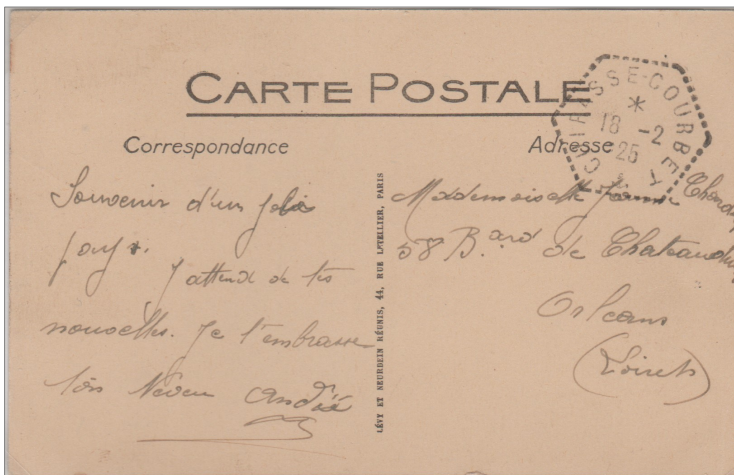 CARTE POSTALE
Correspondance
Adresse
CUIRASSE-COURBEY
*
18 -2
25
Souvenir d'un joli
pays.
j'attend de tes
nouvelles. Je t'embrasse
ton Neveu André
LÉVY ET NEURDEIN RÉUNIS, 44, RUE LETELLIER, PARIS
Mademoiselle
58 B.ard de Chateaudun
Orleans
(Loiret)